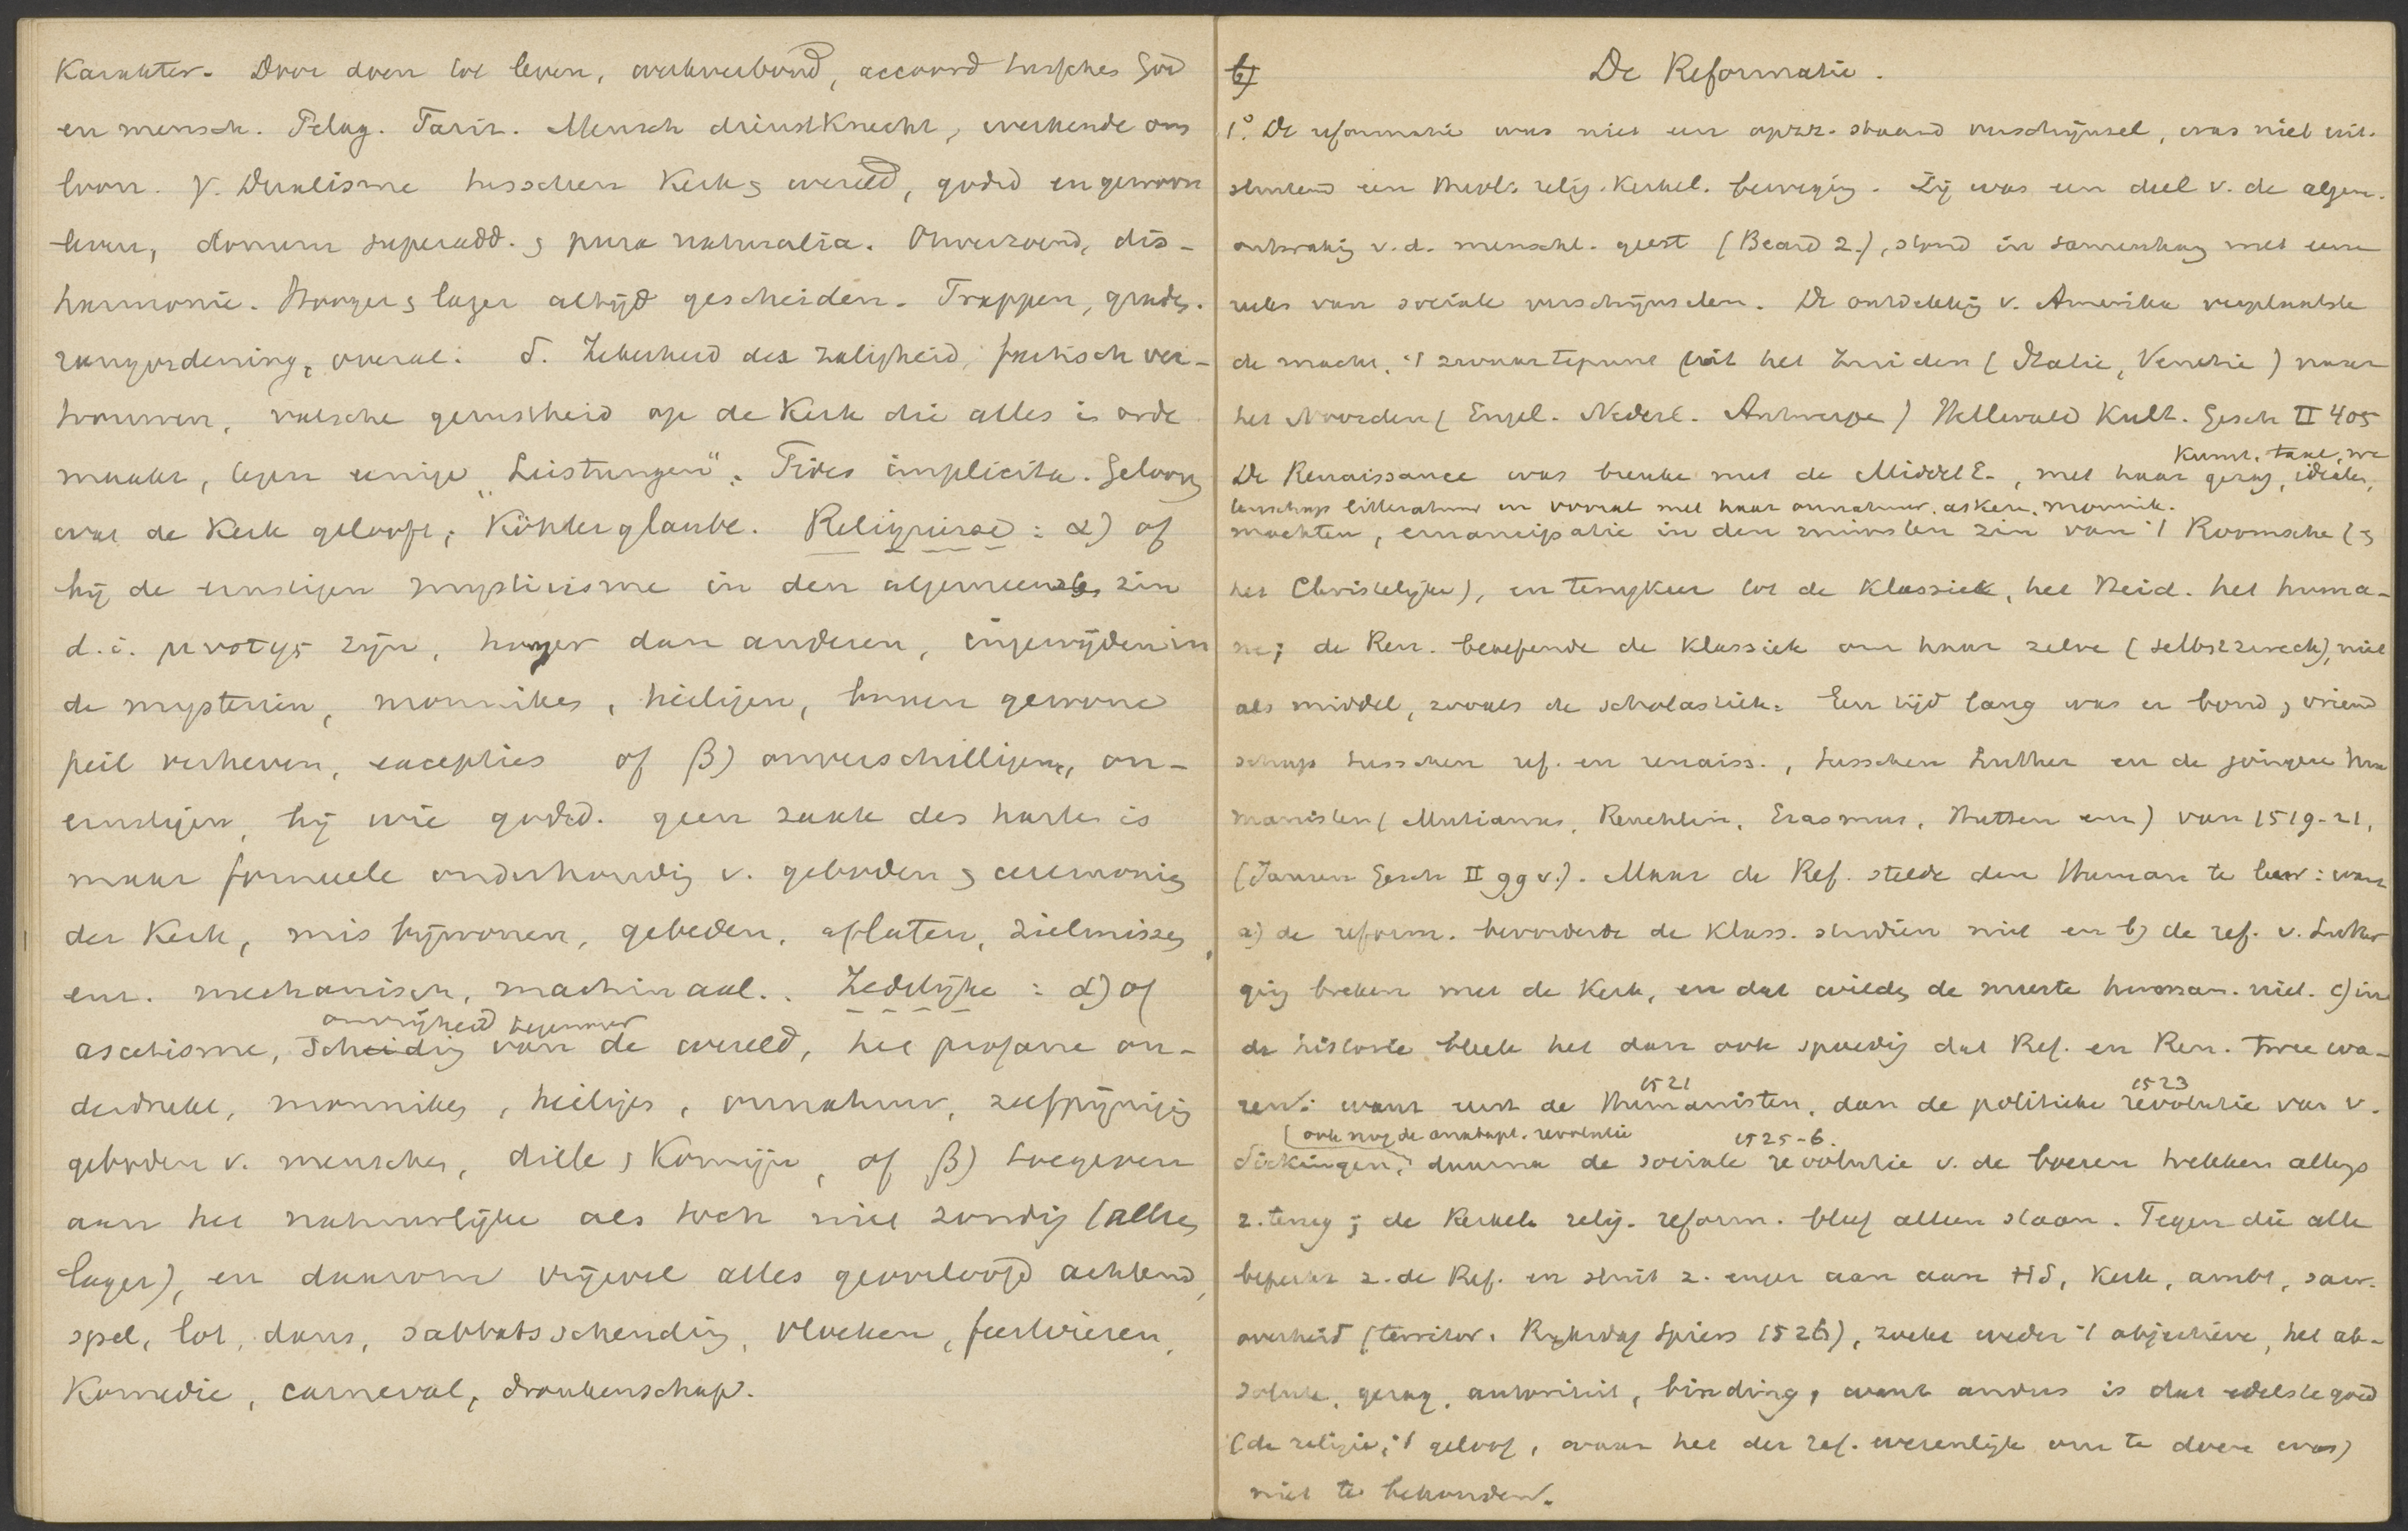 Karakter. Door doen tot leven, werkverbond, accoord tusschen God
en mensch. Pelag. Fariz. Mensch dienstknecht, werkende om
loon. γ. Dualisme tusschen Kerk & wereld, godsd en gewoon
leven, donum superadd. & pura naturalia. Onverzoend, dis-
harmonie. Hooger & lager altijd gescheiden. Trappen, graden.
rangordening, overal. δ. Zekerheid der zaligheid, practisch ver-
trouwen, valsche gerustheid op de Kerk die alles in orde
maakt, tegen eenige „Leistungen". Fides implicita. Geloove
wat de Kerk gelooft, Köhlerglaube. Religieuse : α) of
bij de ernstigen mysticisme in den algemeensten zin
d.i. μυστης zijn, hooger dan anderen, ingewijden in
de mysterien, monniken, heiligen, boven gewone
peil verheven, excepties of β) onverschilligen, on-
ernstigen, bij wie godsd. geen zaak des harten is
maar formeele onderhouding v. geboden & ceremonien
der Kerk, mis bijwonen, gebeden, aflaten, zielmissen,
enz. mechanisch, machinaal. Zedelijke : α) of
onvrijheid tegenover
ascetisme, Scheiding van de wereld, het profane on-
derdrukt, monniken, heiligen, onnatuur, zelfpijniging
geboden v. menschen, dille & Komijn, of β) toegeven
aan het natuurlijke als toch niet zondig (alleen
lager), en daarom vrijwel alles geoorloofd achtend,
spel, lot, dans, sabbatsschending, vloeken, feestvieren,
Komedie, carneval, dronkenschap.
b) De Reformatie.
1°. De reformatie was niet een opzz. staand verschijnsel, was niet uit-
sluitend een relig. Kerkel. beweging. Zij was een deel v. de algem.
ontwakig v.d. menschl. geest (Beard 2.), stond in samenhang met eene
reeks van sociale verschijnselen. De ontdekkig v. Amerika verplaatste
de macht, 't zwaartepunt uit het Zuiden (Italie, Venetie) naar
het Noorden (Engel. Nederl. Antwerpen) Hellwald Kult. Gesch II 405
Kunst, taal, we
De Renaissance was breuke met de Middel E., met haar gezag, idealen,
tenschap litteratuur en vooral met haar onnatuur, askese, monnik.
machten, emancipatie in den ruimsten zin van 't Roomsche (&
het Christelijke), en terugkeer tot de Klassiek, het Heid. het huma-
ne; de Ren. beoefende de Klassiek om haar zelve (Selbstzweck), niet
als middel, zooals de scholastiek. Een tijd lang was er bond, vriend
schap tusschen ref. en renaiss., tusschen Luther en de jongere Hu
manisten (Mutianus, Reuchlin, Erasmus, Hutten enz) van 1519-21,
(Jansen Gesch II 99 v.). Maar de Ref. stelde den Human te leur: want
a) de reform. bevorderde de Klass. studien niet en b) de ref. v. Luther
ging breken met de Kerk, en dat wilden de meeste human. niet. c) in
de historie bleek het dan ook spoedig dat Ref. en Ren. twee wa-
1521 1523
ren: want eerst de Humanisten, dan de politieke revolutie van v.
(ook nog de anabapt. revolutie 1525-6.
Sickingen, daarna de sociale revolutie v. de boeren trekken allen
z. terug; de Kerkel. relig. reform. bleef alleen staan. Tegen die alle
beperkt z. de Ref. en sluit z. enger aan aan HS, Kerk, ambt,
overheid (territor. Rijksdag Spiers 1526), zoekt weder 't objectieve, het ab-
solute, gezag, autoriteit, binding, want anders is dat edelste goed
(de religie, 't geloof, waar het der ref. wezenlijk om te doen was)
niet te behouden.